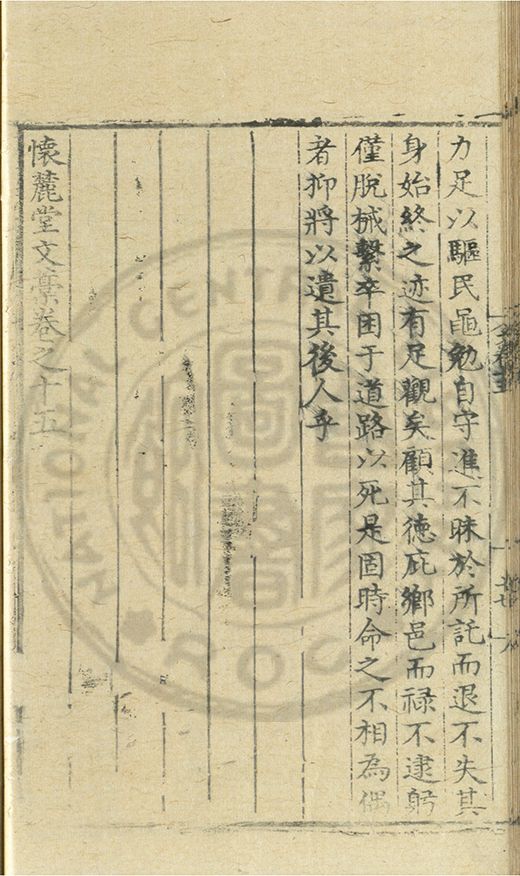 力足以驅民黽勉自守進不昧於所託而退不失其
身始終之迹有足觀矣顧其徳庇鄉邑而禄不逮躬
僅脫械繫卒困于道路以死是固時命之不相為偶
者抑將以遺其後人乎
懷麓堂文藁卷之十五